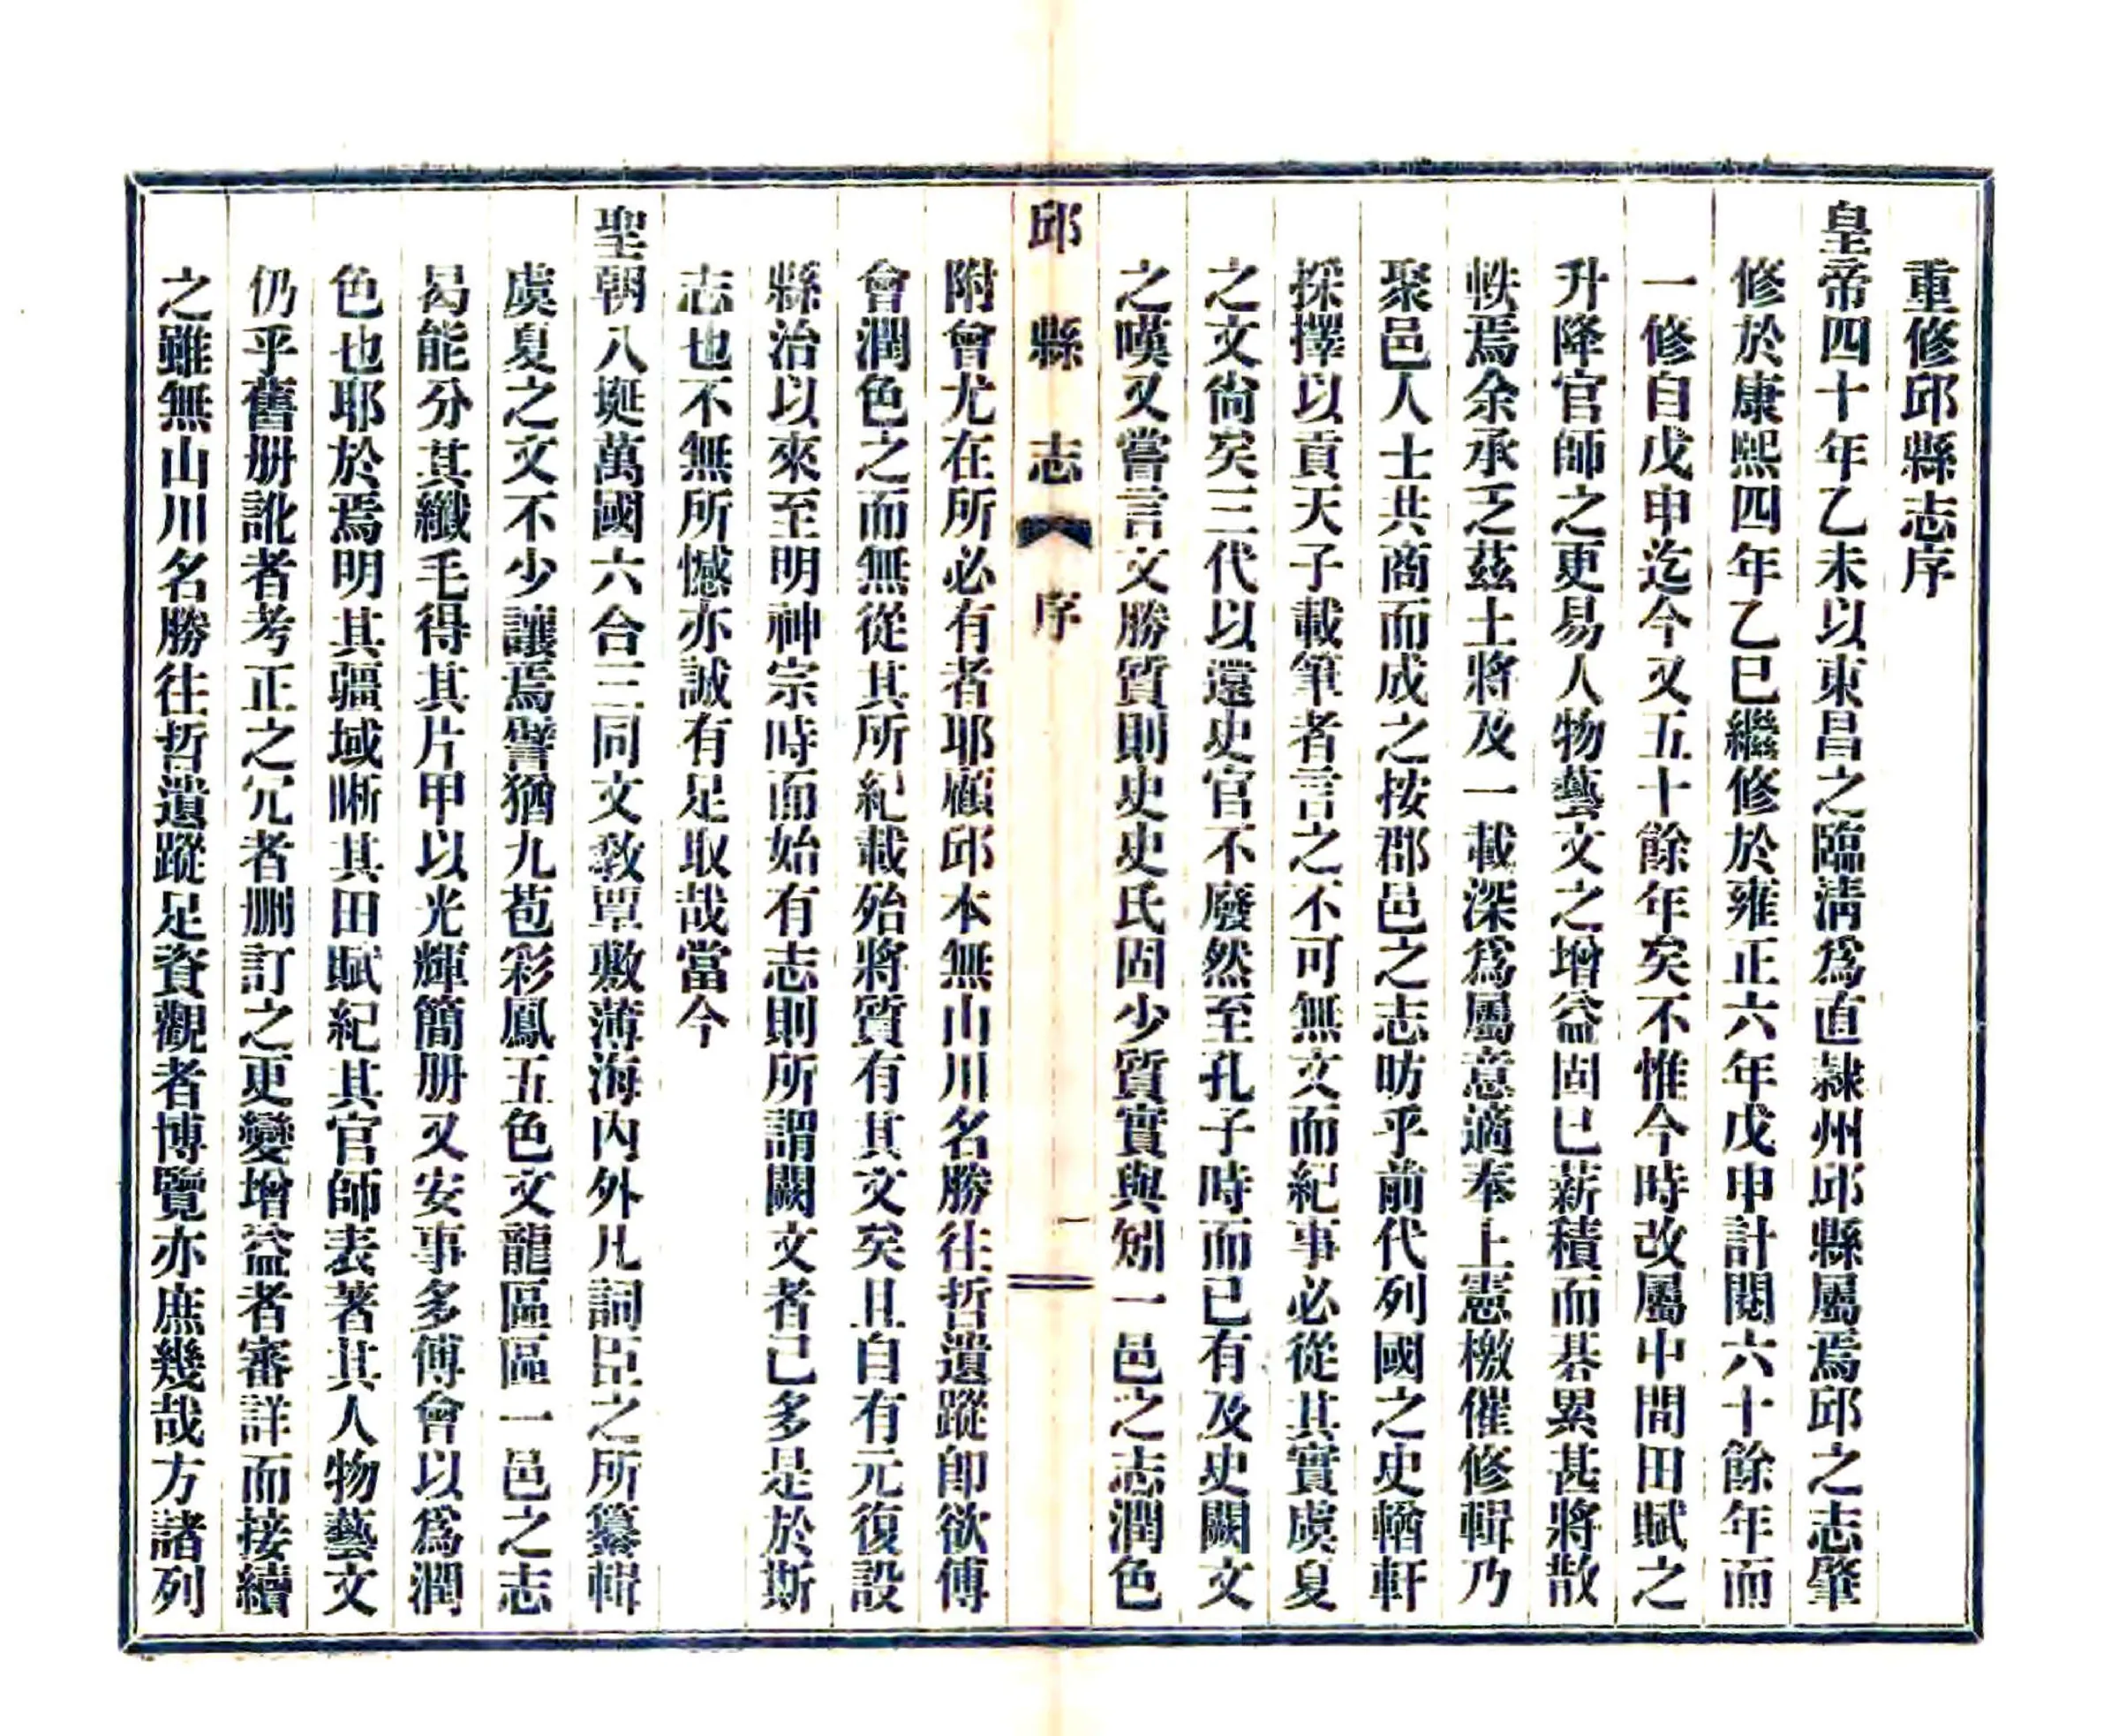 重修邱縣志序
皇帝四十年乙未以東昌之臨淸爲直隸州邱縣屬焉邱之志肇
修於康熙四年乙巳繼修於雍正六年戊申計閱六十餘年而
一修自戊申迄今又五十餘年矣不惟今時改屬中間田賦之
升降官師之更易人物藝文之增益固已薪積而碁累甚將散
帙焉余承乏茲土將及一載深爲屬意適奉上憲檄催修輯乃
聚邑人士共商而成之按郡邑之志昉乎前代列國之史輶軒
採擇以貢天子載筆者言之不可無文而紀事必從其實虞夏
之文尙矣三代以還史官不廢然至孔子時而已有及史闕文
之嘆又嘗言文勝質則史史氏固少質實與矧一邑之志潤色
邱縣志 序 一
附會尤在所必有者耶顧邱本無山川名勝往哲遺蹤卽欲傅
會潤色之而無從其所紀載殆將質有其文矣且自有元復設
縣治以來至明神宗時而始有志則所謂闕文者已多是於斯
志也不無所憾亦誠有足取哉當今
聖朝八埏萬國六合三同文敎覃敷薄海內外凡詞臣之所纂輯
虞夏之文不少讓焉譬猶九苞彩鳳五色文龍區區一邑之志
曷能分其纖毛得其片甲以光輝簡册又安事多傅會以爲潤
色也耶於焉明其疆域晰其田賦紀其官師表著其人物藝文
仍乎舊册訛者考正之冗者删訂之更變增益者審詳而接續
之雖無山川名勝往哲遺蹤足資觀者博覽亦庶幾哉方諸列